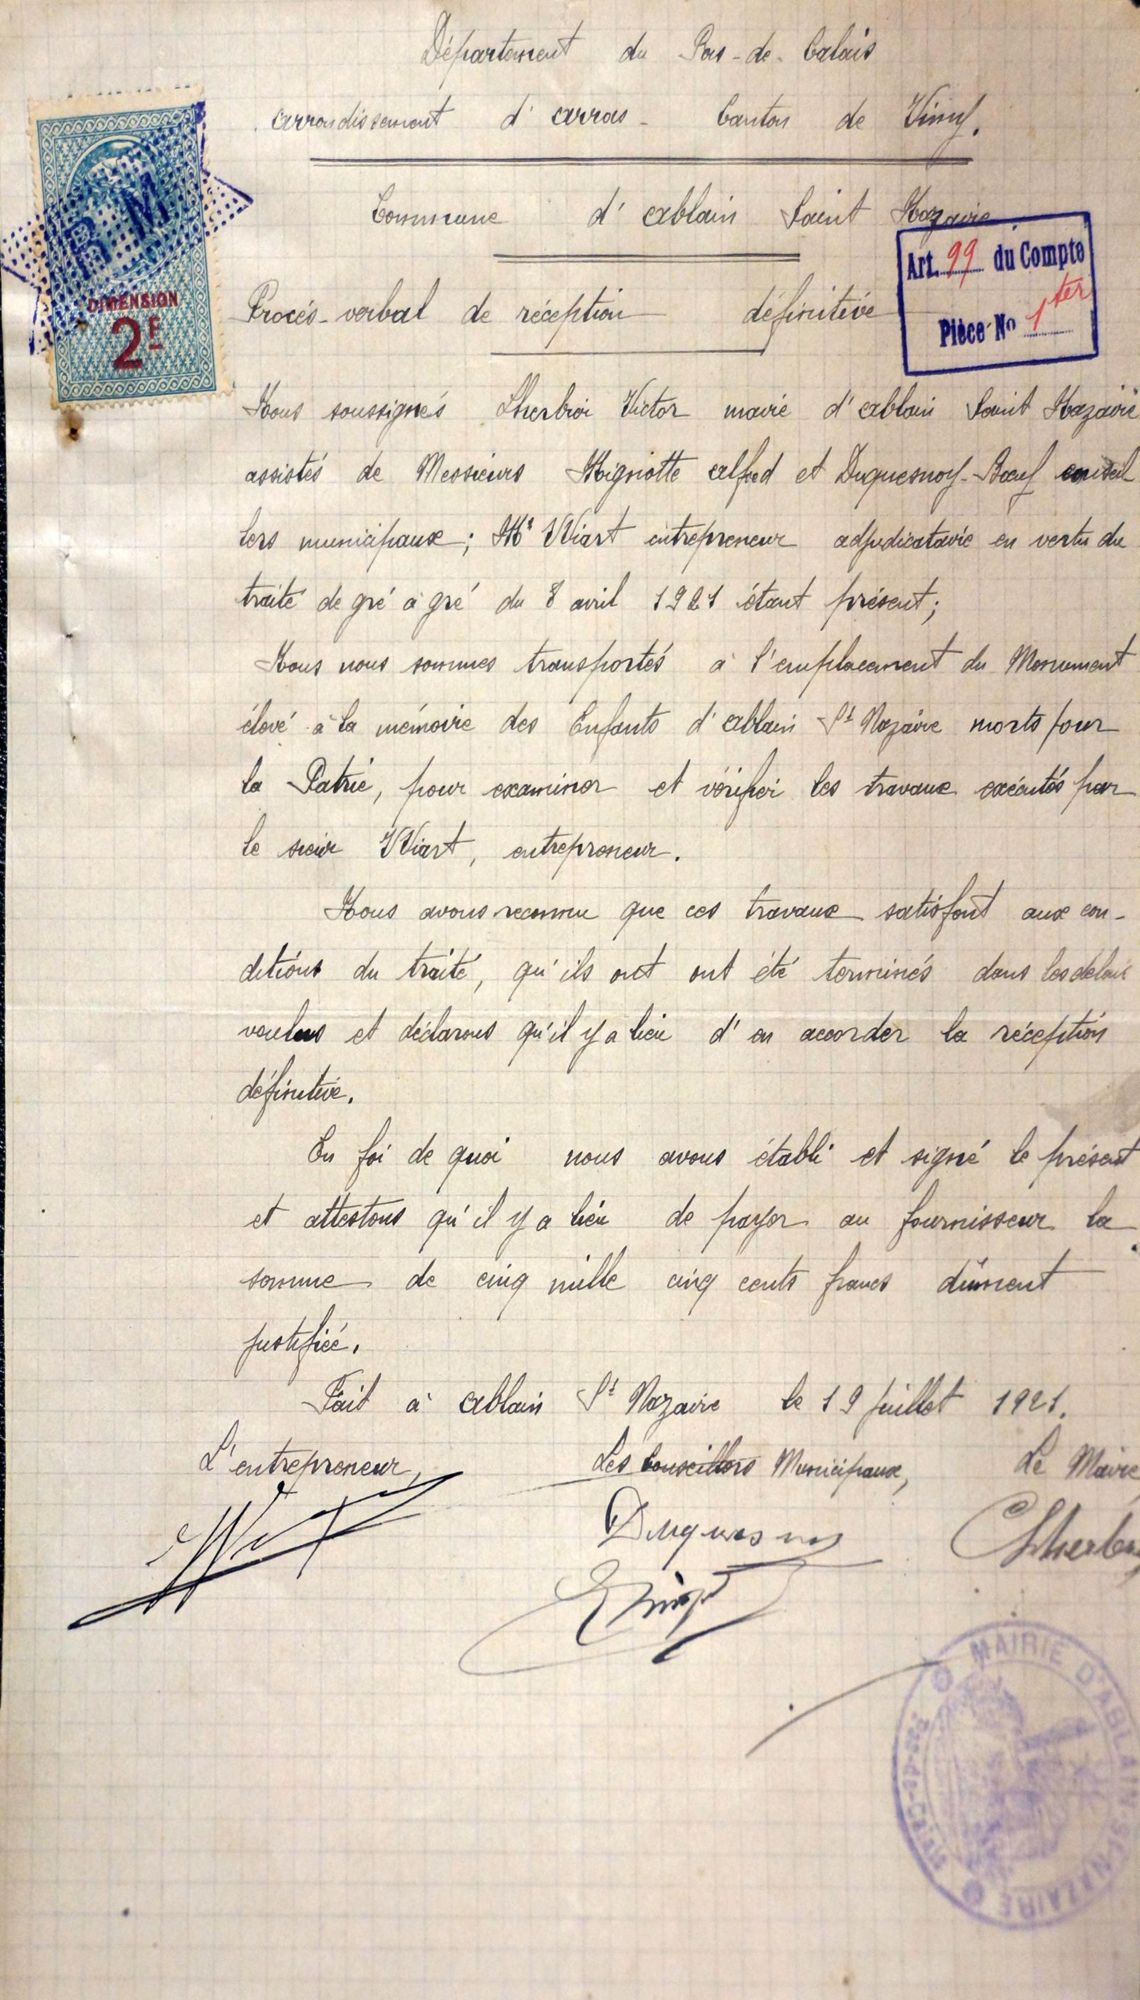 Département du Pas-de-Calais
arrondissement d'arras - Canton de Vimy.
Commune d'ablain Saint Nazaire
R M
DIMENSION
2F
Art. 99 du Compte
Pièce No 1 ter
Procès-verbal de réception définitive
Nous soussignés Lherbier Victor maire d'ablain Saint Nazaire
assistés de Messieurs Mignotte alfred et Duquesnoy-Boeuf conseil
lers municipaux; Mr Wiart entrepreneur adjudicataire en vertu du
traité de gré à gré du 8 avril 1921 étant présent;
Nous nous sommes transportés à l'emplacement du Monument
élevé à la mémoire des Enfants d'ablain St Nazaire morts pour
la Patrie, pour examiner et vérifier les travaux exécutés par
le sieur Wiart, entrepreneur.
Nous avons reconnu que ces travaux satisfont aux con-
ditions du traité, qu'ils ont ont été terminés dans les délais
voulus et déclarons qu'il y a lieu d'en accorder la réception
définitive.
En foi de quoi nous avons établi et signé le présent
et attestons qu'il y a lieu de payer au fournisseur la
somme de cinq mille cinq cents francs dûment
justifiée.
Fait à ablain St Nazaire le 19 juillet 1921.
L'entrepreneur, Les Conseillers Municipaux, Le Maire,
Wiart Duquesnoy Lherbier
MAIRIE D'ABLAIN-ST-NAZAIRE
Pas-de-Calais